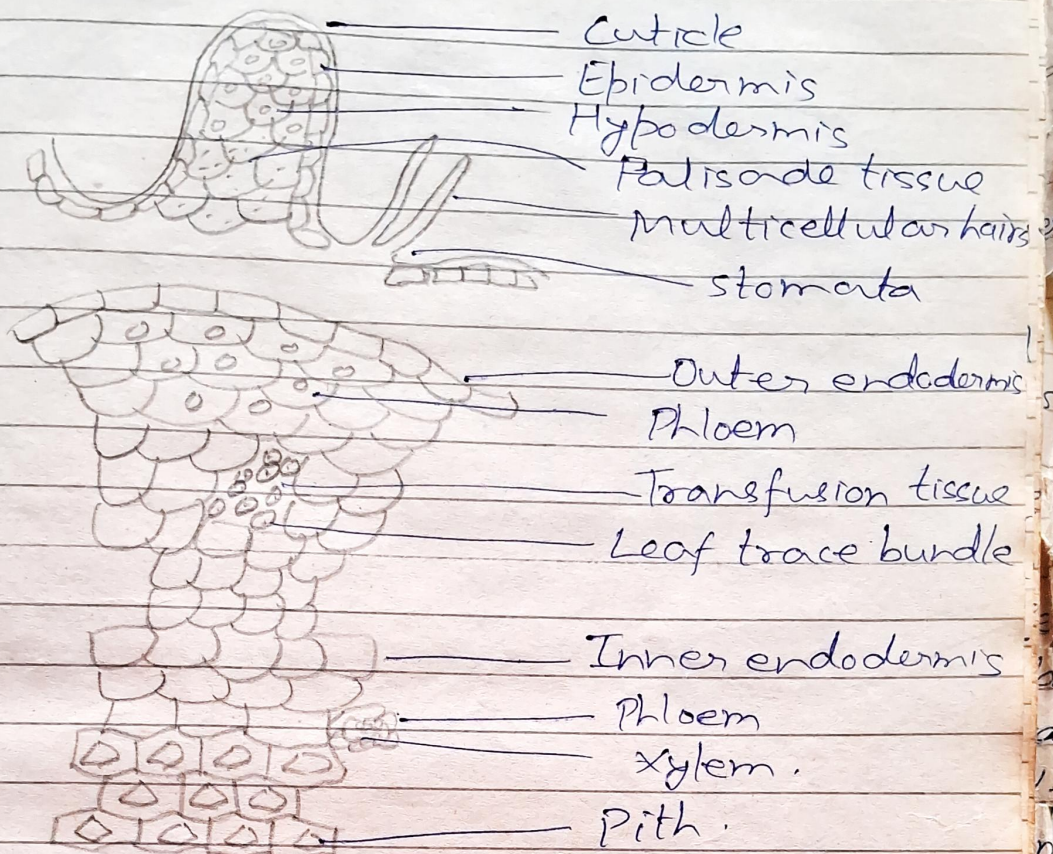 Cuticle
Epidermis
Hypodermis
Palisade tissue
Multicellular hairs
stomata
Outer endodermis
Phloem
Transfusion tissue
Leaf trace bundle
Inner endodermis
Phloem
Xylem.
Pith.